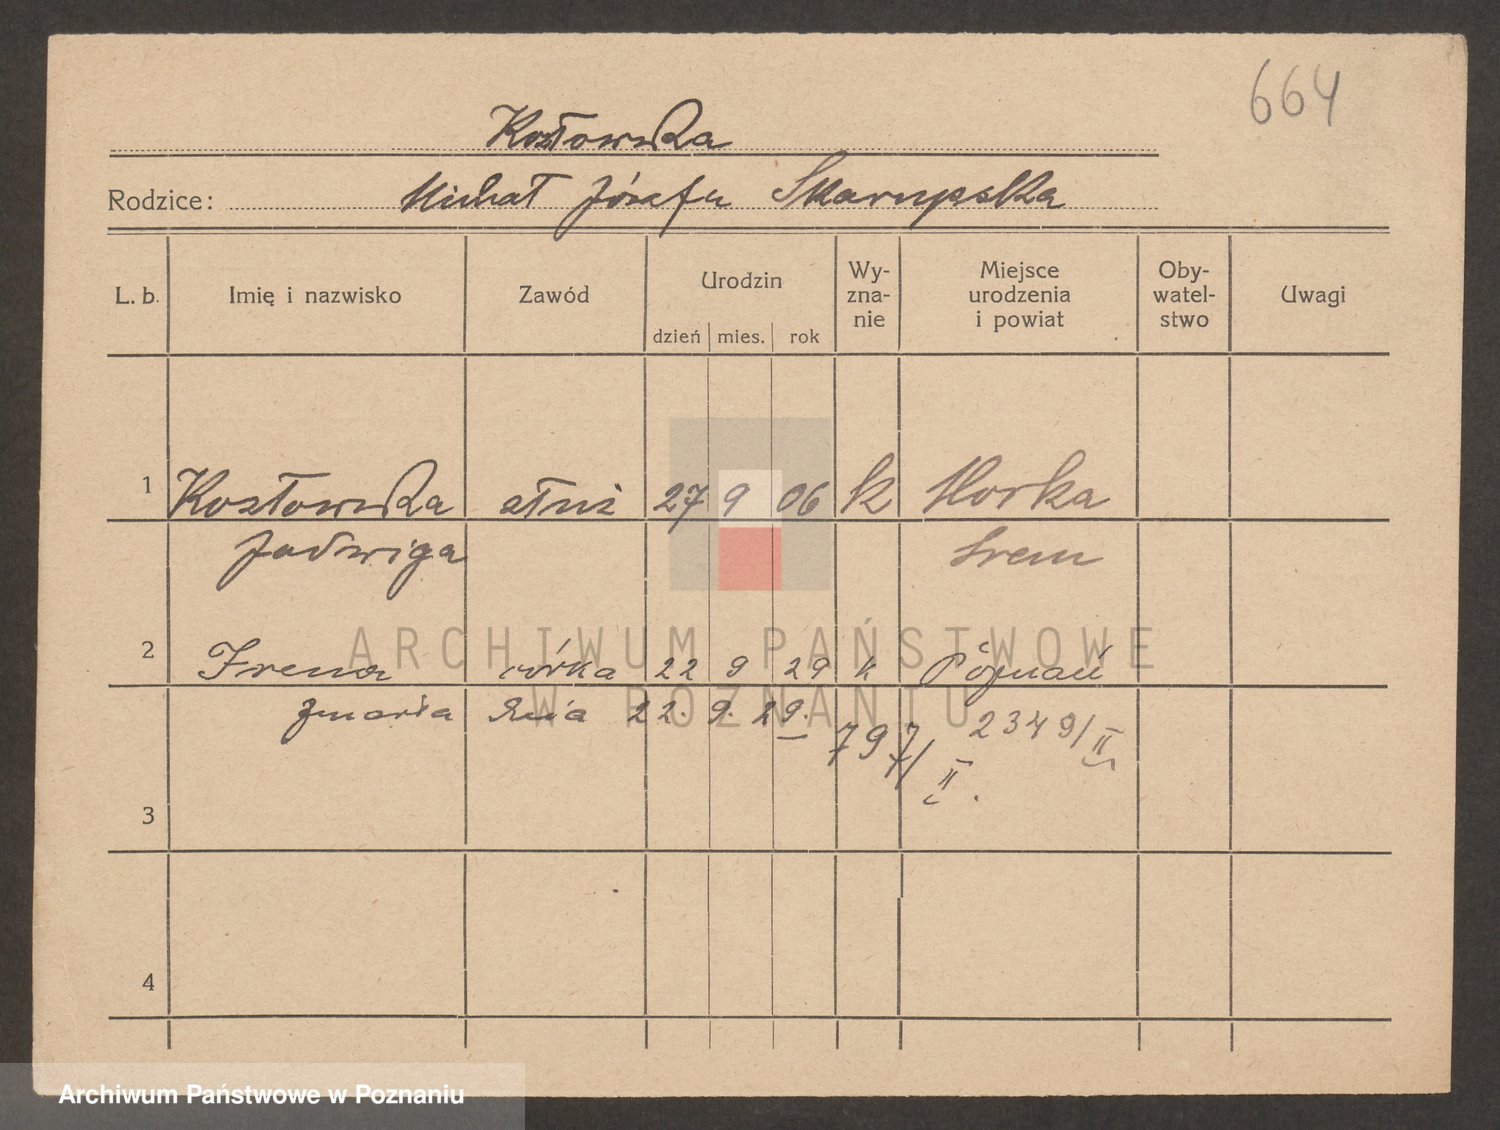 664
Kozłowska
Rodzice: Michał Józefa Skarupska
L. b. Imię i nazwisko Zawód Urodzin dzień mies. rok Wy-zna-nie Miejsce urodzenia i powiat Oby-watel-stwo Uwagi
1 Kozłowska służ 27 9 06 k Horka
Jadwiga Srem
2 Irena córka 22 9 29 k Poznań
zmarła dnia 22. 9. 29. 797/II 2349/II
3
4
ARCHIWUM PAŃSTWOWE
W POZNANIU
Archiwum Państwowe w Poznaniu